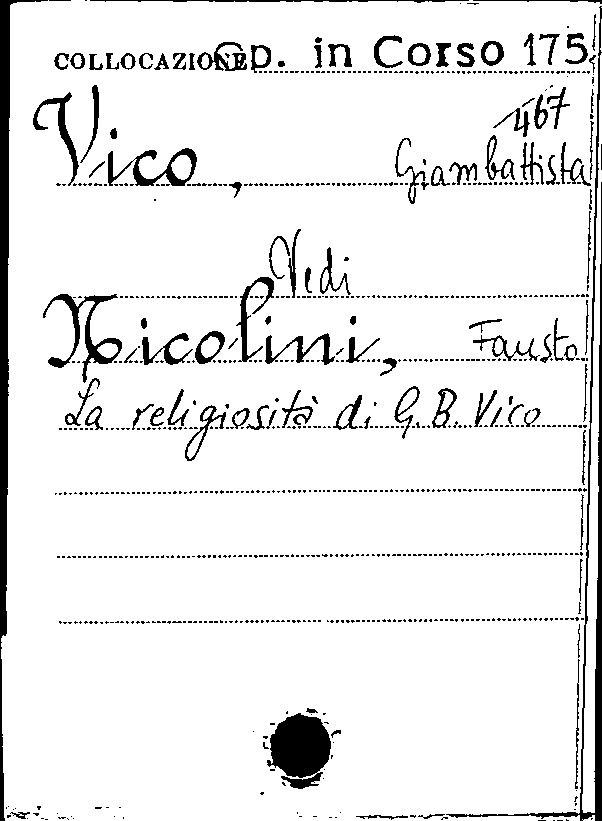 COLLOCAZIONE Op. in Corso 175
467
Vico, Giambattista
Vedi
Nicolini, Fausto
La religiosità di G. B. Vico